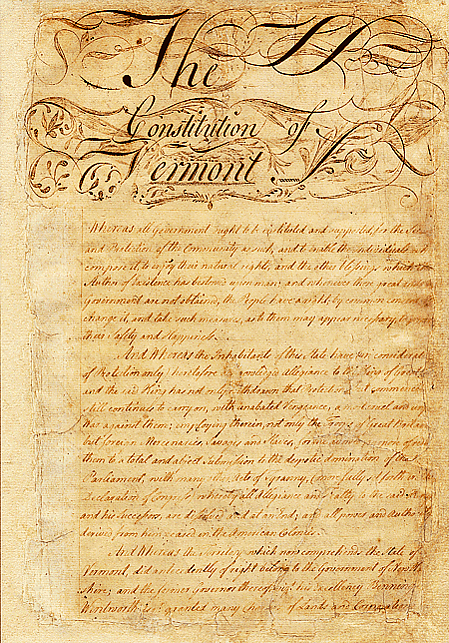 The
Constitution of
Vermont
Whereas all Government ought to be instituted and supported for the Sec
and Protection of the Community as such, and to enable the individuals w
compose it, to enjoy their natural rights, and the other Blessings which the
Author of Existence has bestowed upon man; and whenever those great ends of
Government are not obtained, the People have a right by common consent to
change it, and take such measures, as to them may appear necessary, to promote
their Safety and Happiness.
And Whereas the Inhabitants of this State have, in consideration
of Protection only, heretofore acknowledged allegiance to the King of Great
and the said King has not only withdrawn that Protection, but commenced
still continues to carry on, with unabated Vengeance, a most cruel and un
War against them; employing therein, not only the Troops of Great Britain
but foreign Mercenaries, Savages and Slaves, for the avowed purpose of red
them to a total and abject Submission to the despotic domination of the
Parliament, with many other Acts of Tyranny, (more fully set forth in the
Declaration of Congress) whereby all Allegiance and Fealty to the said King
and his Successors, are dissolved and at an end; and all power and Authority
derived from him ceased in the American Colonies.
And Whereas the Territory which now comprehends the State of
Vermont, did antecedently of right belong to the Government of New Ham
shire; and the former Governor thereof, viz. his Excellency Benning
Wentworth Esqr. granted many Charters of Lands and Corporations